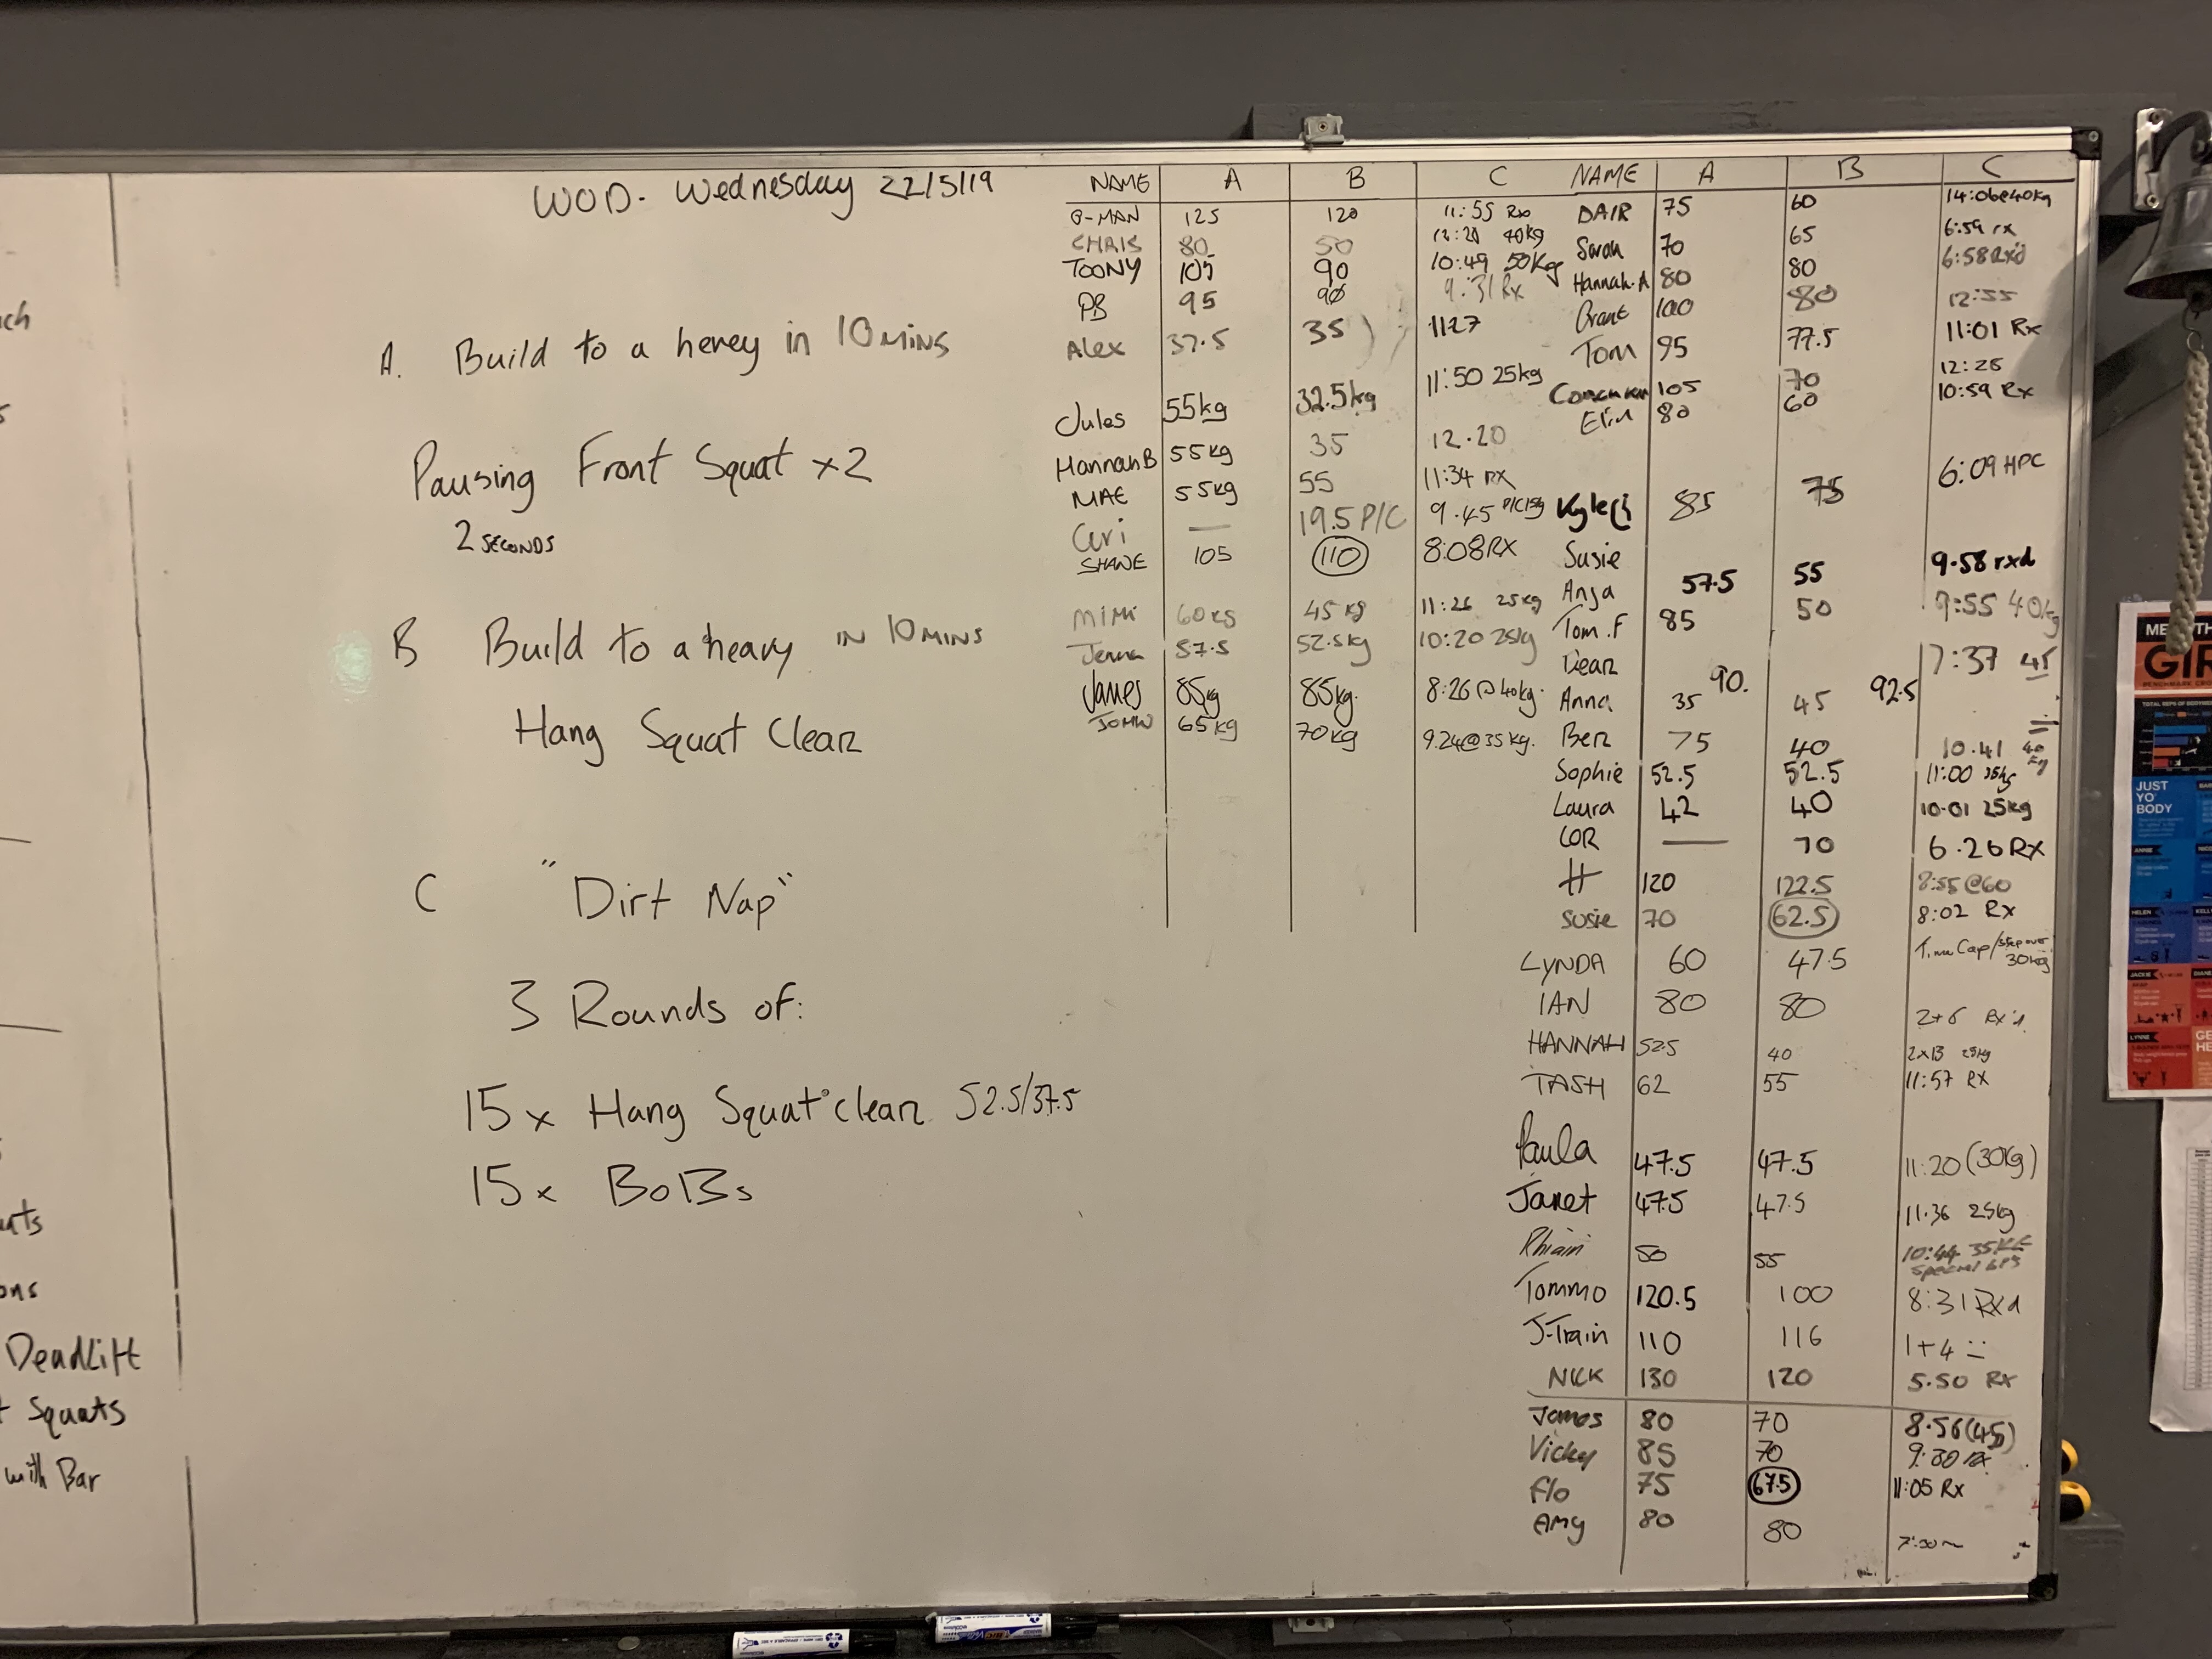 WOD. Wednesday 22/5/19
A. Build to a hevey in 10 MINS
Pausing Front Squat x2
2 SECONDS
B Build to a heavy IN 10 MINS
Hang Squat Clean
C "Dirt Nap"
3 Rounds of:
15x Hang Squat clean 52.5/37.5
15x BoBs
NAME A B C
G-MAN 125 120 11:55 Rx
CHRIS 80 50 40kg
TOONY 105 90 10:49 50kg
PB 95 90 9:31 Rx
Alex 37.5 35 1127
Jules 55kg 32.5kg 11:50 25kg
HannahB 55kg 35 12.20
MAE 55kg 55 11:34 RX
Ceri — 19.5 P/C 9.45 P/C
SHANE 105 110 8:08 RX
MiMi 60kg 45kg 11:26 25kg
Jenna 57.5 52.5kg 10:20 25kg
James 85kg 85kg. 8:26 @ 40kg.
JOHN 65kg 70kg 9.24@35kg.
NAME A B C
DAIR 75 60 14:06@40kg
Sarah 70 65 6:59 rx
Hannah.A 80 80 6:58 Rx'd
Grant 100 80 12:55
Tom 95 77.5 11:01 Rx
105 70 12:25
Elin 80 60 10:59 Rx
85 75 6:09 HPC
Susie
Anja 57.5 55 9.58 rxd
Tom.F 85 50 40kg
Dean 90. 92.5 7:37 45
Anna 35 45
Ben 75 40 10.41 40kg
Sophie 52.5 52.5 11:00 35kg
Laura 42 40 10.01 25kg
COR — 70 6.26 Rx
H 120 122.5 8:55 @60
Susie 70 62.5 8:02 Rx
LYNDA 60 47.5 Time Cap/step over 30kg
IAN 80 80 2+6 Rx'd
HANNAH 52.5 40 2x13 25kg
TASH 62 55 11:57 RX
Paula 47.5 47.5 11:20 (30kg)
Janet 47.5 47.5 11.36 25kg
Rhian 50 55 10:44 35KG
Tommo 120.5 100 8:31 Rxd
J-Train 110 116 1+4
NICK 130 120 5.50 Rx
James 80 70 8.56 (45)
Vicky 85 70 9:30 Rx
Flo 75 67.5 11:05 Rx
Amy 80 80
Deadlift
Squats
with Bar
JUST
YO'
BODY
ANNIE
HELEN
JACKIE
LYNNE